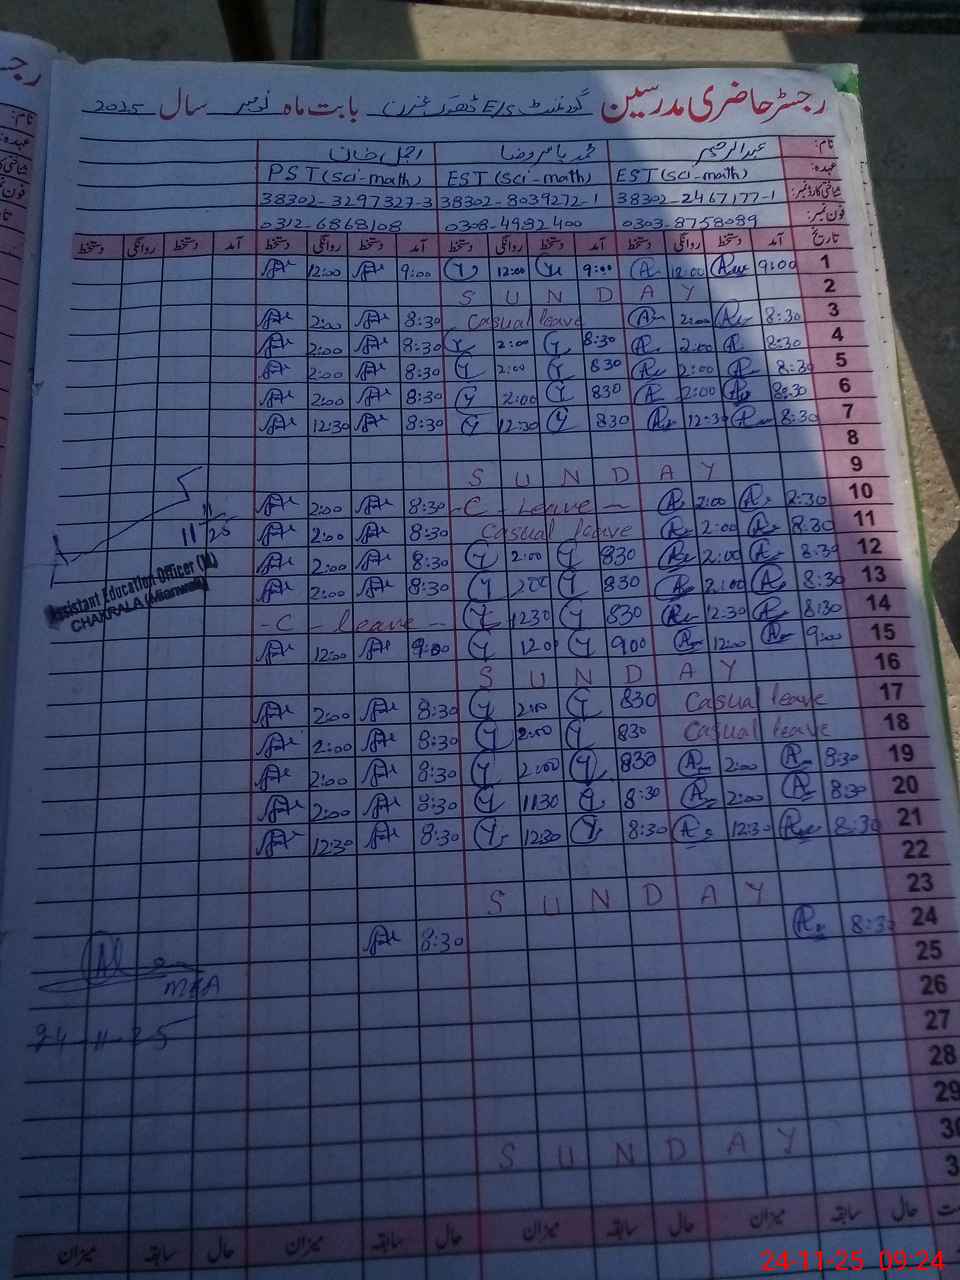 رجسٹر حاضری مدرسین گورنمنٹ E/S بابت ماہ نومبر سال 2025
نام: عبدالرحیم محمد یاسر رضا اجمل خان
عہدہ: EST (Sci-math) EST (Sci-math) PST (Sci-math)
شناختی کارڈ نمبر: 38302-2467177-1 38302-8039272-1 38302-3297327-3
فون نمبر: 0303-8758089 0308-4982400 0312-6868108
تاریخ آمد دستخط روانگی دستخط آمد دستخط روانگی دستخط آمد دستخط روانگی دستخط آمد دستخط روانگی دستخط
1 9:00 12:00 9:00 12:00 9:00 12:00
2 SUNDAY
3 8:30 2:00 Casual leave 8:30 2:00
4 8:30 2:00 8:30 2:00 8:30 2:00
5 8:30 2:00 830 2:00 8:30 2:00
6 8:30 2:00 830 2:00 8:30 2:00
7 8:30 12:30 830 12:30 8:30 12:30
8
9 SUNDAY
10 2:30 2:00 -C-Leave- 8:30 2:00
11 8:30 2:00 Casual leave 8:30 2:00
12 8:30 2:00 830 2:00 8:30 2:00
13 8:30 2:00 830 200 8:30 2:00
14 8:30 12:30 830 1230 -C-leave-
15 9:00 12:00 900 1200 9:00 12:00
16 SUNDAY
17 Casual leave 830 2:00 8:30 2:00
18 Casual leave 830 2:00 8:30 2:00
19 8:30 2:00 830 2:00 8:30 2:00
20 8:30 2:00 8:30 1130 8:30 2:00
21 8:30 12:30 8:30 12:30 8:30 12:30
22
23 SUNDAY
24 8:30 8:30
25
26
27
28
29
30 SUNDAY
3
11/11/25
Assistant Education Officer (M)
CHAKRALA (Mianwali)
MEA
24-11-25
حال سابقہ میزان حال سابقہ میزان حال سابقہ میزان حال سابقہ میزان
24-11-25 09:24